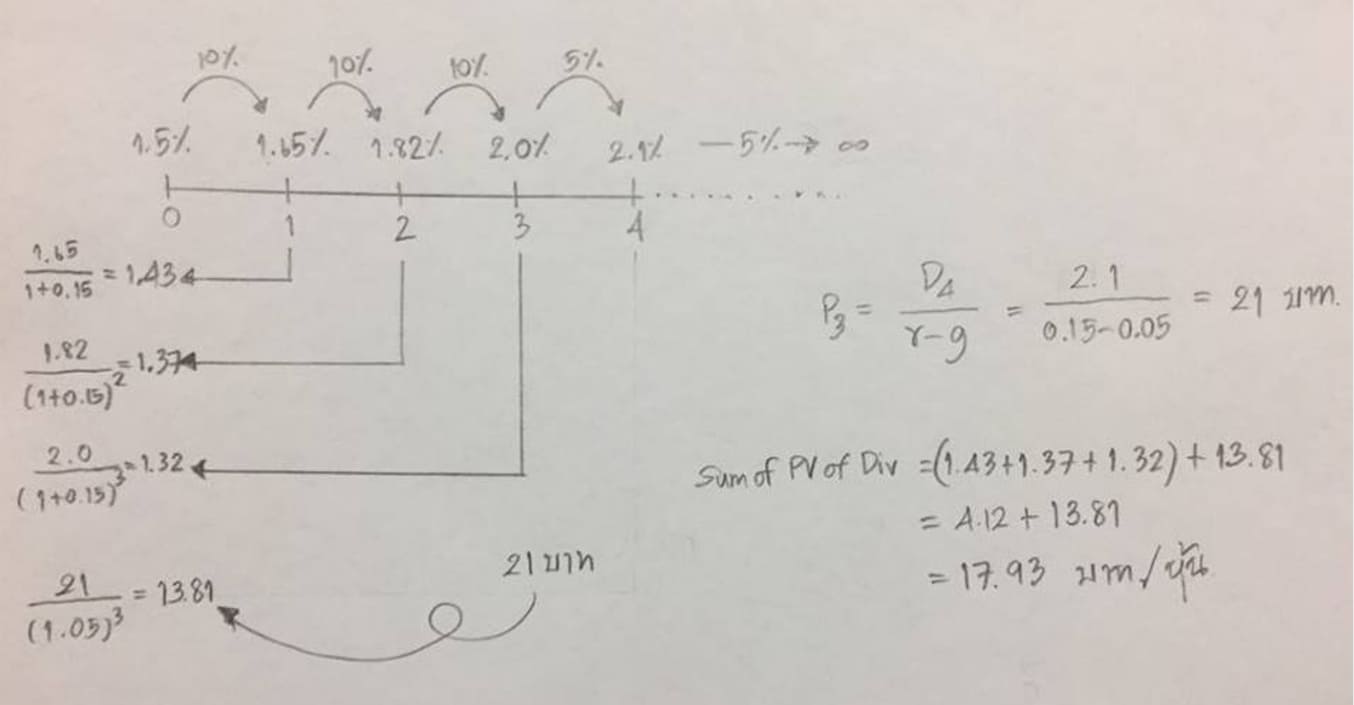 10% 10% 10% 5%
1.5% 1.65% 1.82% 2.0% 2.1% — 5% → ∞
0 1 2 3 4 ..........
1.65 / 1+0.15 = 1.43
1.82 / (1+0.15)² = 1.37
2.0 / (1+0.15)³ = 1.32
21 / (1.05)³ = 13.81
21 บาท
P₃ = D₄ / r-g = 2.1 / 0.15-0.05 = 21 บาท.
Sum of PV of Div = (1.43+1.37+1.32) + 13.81
= 4.12 + 13.81
= 17.93 บาท/หุ้น